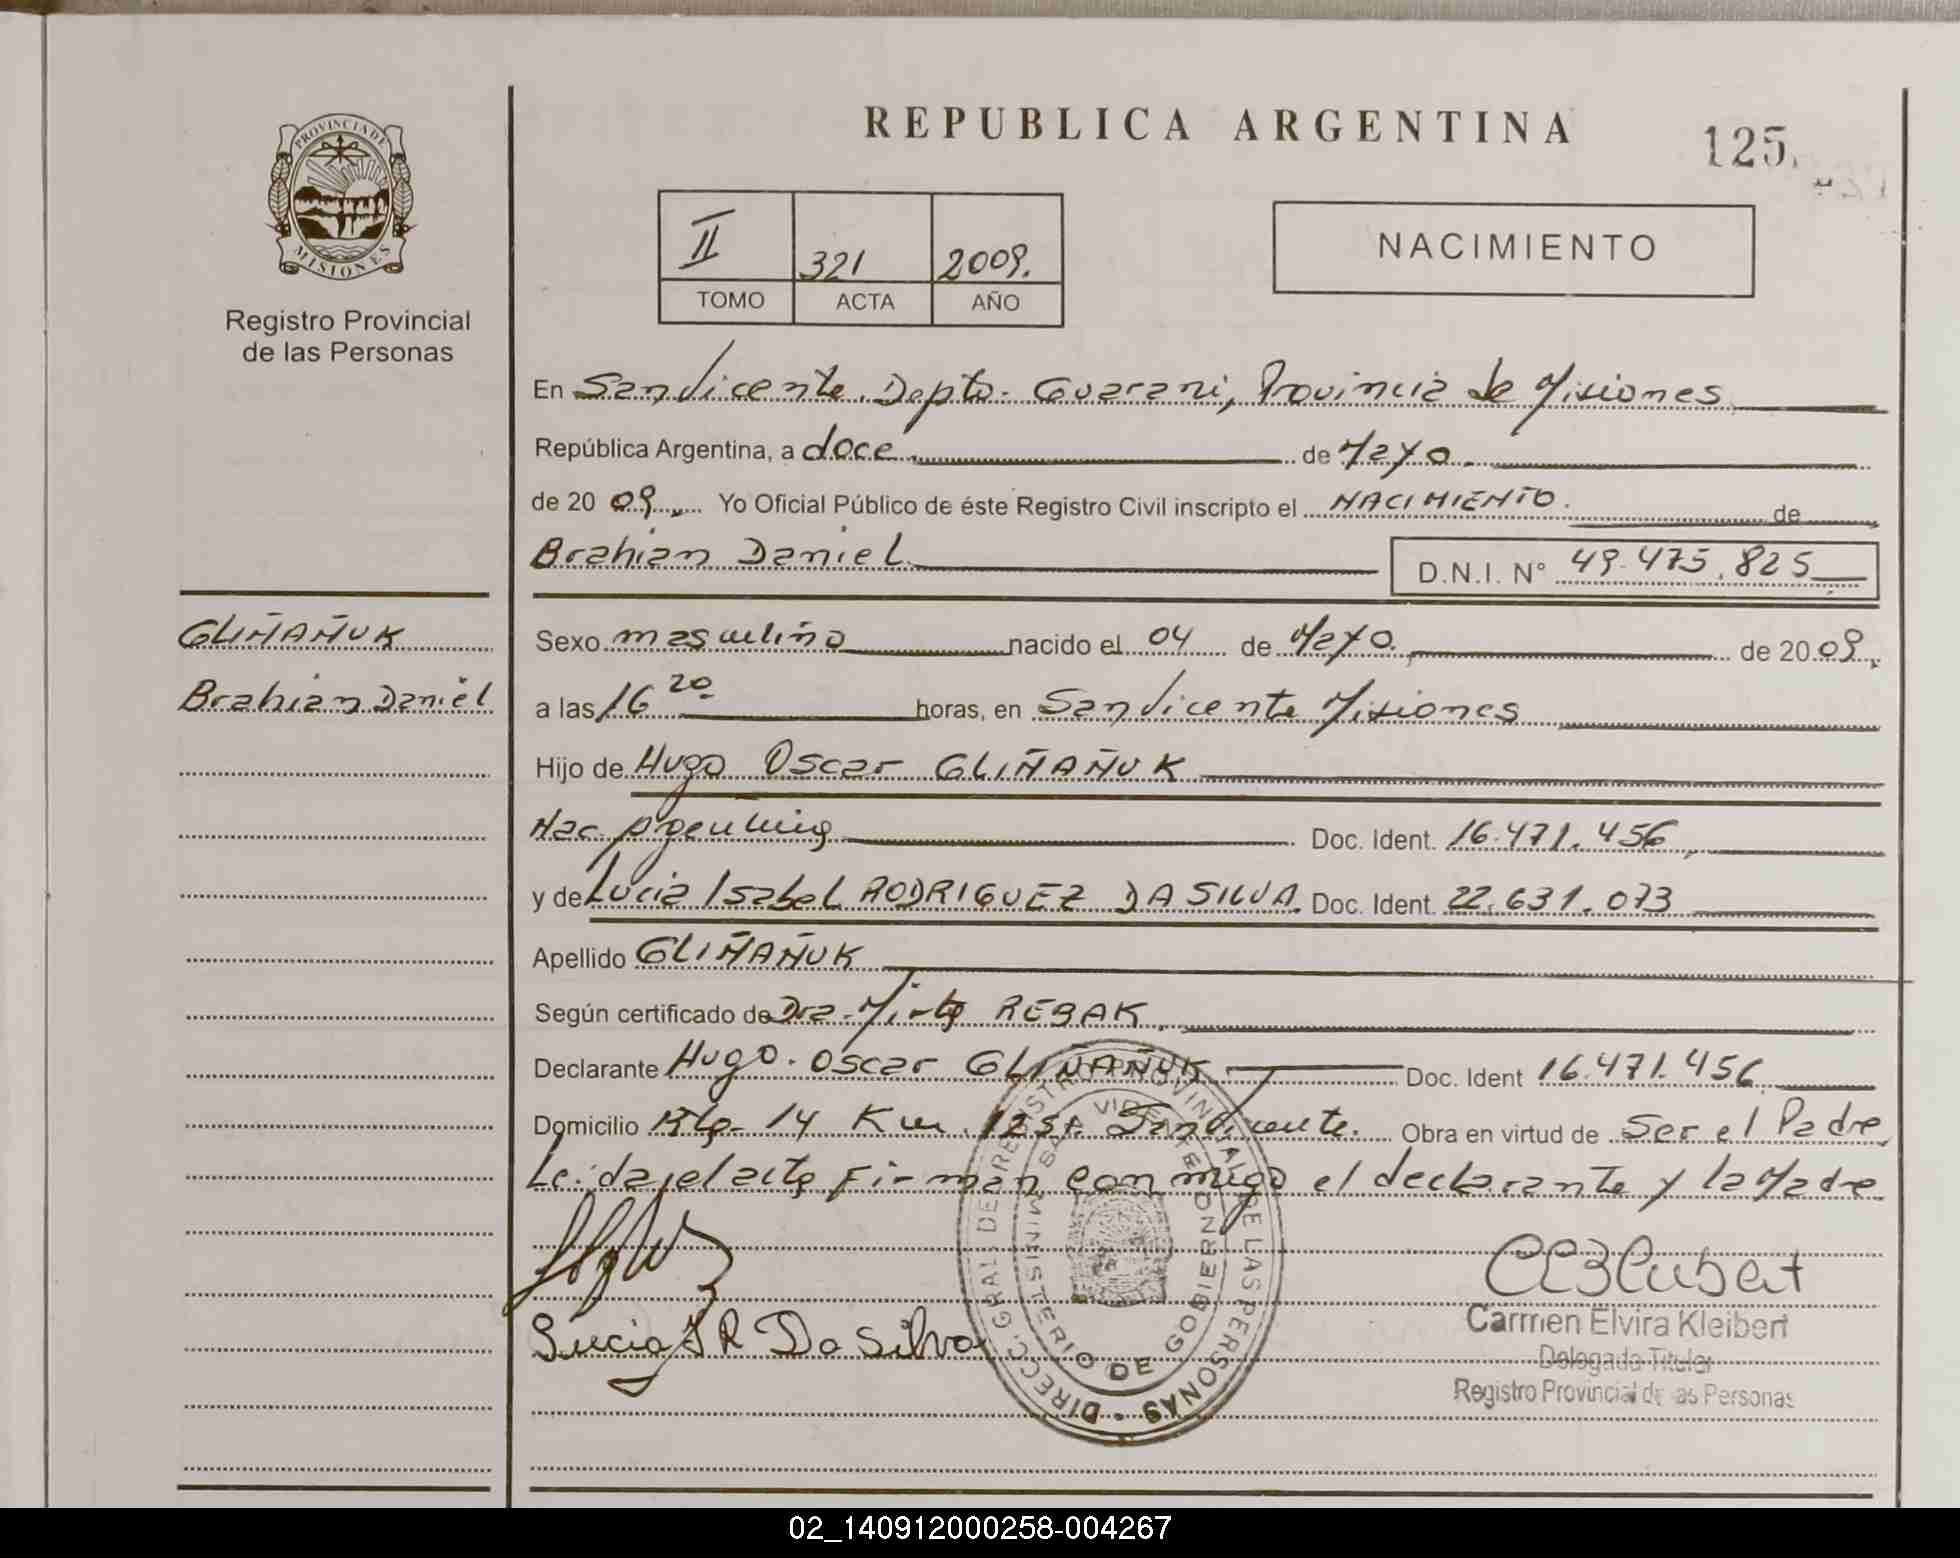 REPUBLICA ARGENTINA
125.
PROVINCIA DE
MISIONES
Registro Provincial
de las Personas
II 321 2009.
TOMO ACTA AÑO
NACIMIENTO
En San Vicente. Depto. Guarani, Provincia de Misiones
República Argentina, a doce de Mayo.
de 20 09. Yo Oficial Público de éste Registro Civil inscripto el NACIMIENTO. de
Brahian Daniel D.N.I. N° 49.475.825
GLIÑAÑUK
Brahian Daniel
Sexo masculino nacido el 04 de Mayo. de 20 09.
a las 16 20 horas, en San Vicente Misiones
Hijo de Hugo Oscar GLIÑAÑUK
Nac. Argentina Doc. Ident. 16.471.456
y de Lucia Isabel RODRIGUEZ DA SILVA. Doc. Ident. 22.631.073
Apellido GLIÑAÑUK
Según certificado de Dra. Mirta REBAK.
Declarante Hugo. Oscar GLIÑAÑUK Doc. Ident 16.471.456
Domicilio Rta. 14 Km. 1251. San Vicente. Obra en virtud de Ser el Padre
Leida el acta Firman conmigo el declarante y la Madre
Lucia I R Da Silva
DIRECC. GRAL. DE REGISTRO PROVINCIAL DE LAS PERSONAS
SAN VICENTE
MINISTERIO DE GOBIERNO
Carmen Elvira Kleibert
Delegada Titular
Registro Provincial de las Personas
02_140912000258-004267